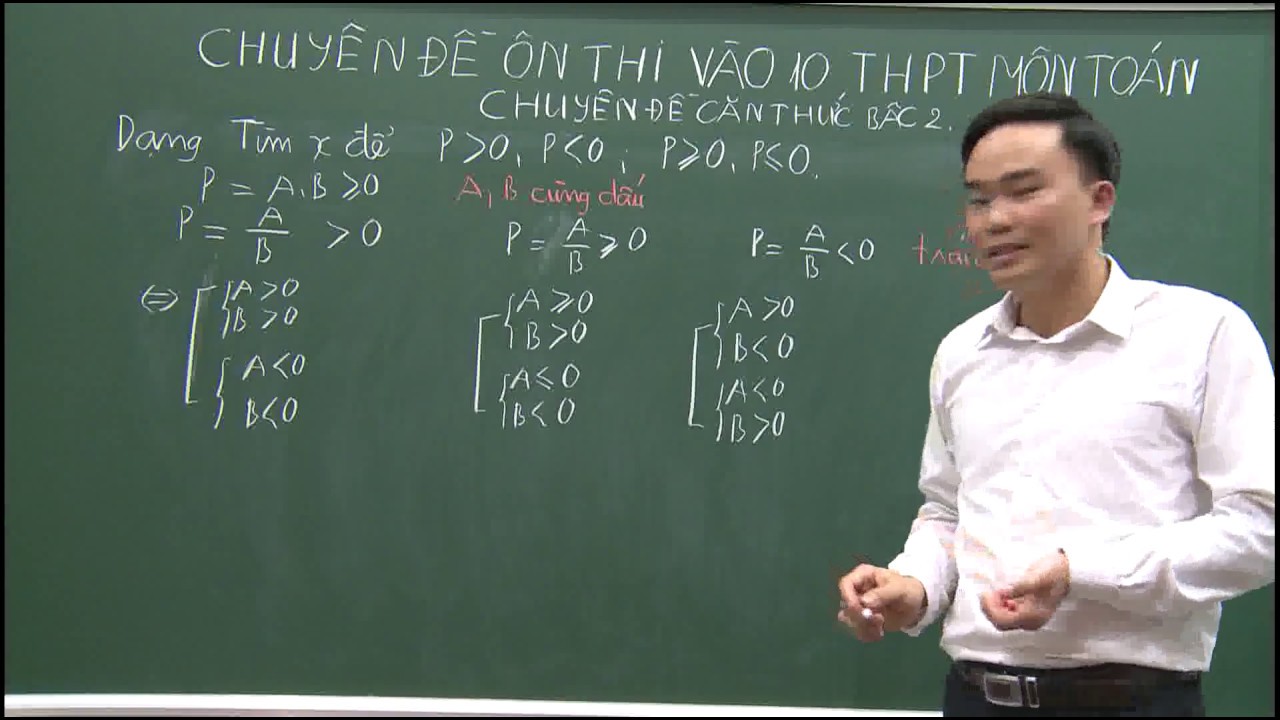 CHUYÊN ĐỀ ÔN THI VÀO 10 THPT MÔN TOÁN
CHUYÊN ĐỀ CĂN THỨC BẬC 2.
Dạng Tìm x để P>0, P<0; P≥0, P≤0.
P = A.B ≥0 A, B cùng dấu
P = A/B > 0
P = A/B ≥ 0
P = A/B < 0
⇔ [ { A > 0
B > 0
{ A < 0
B < 0
[ { A ≥ 0
B > 0
{ A ≤ 0
B < 0
[ { A > 0
B < 0
{ A < 0
B > 0